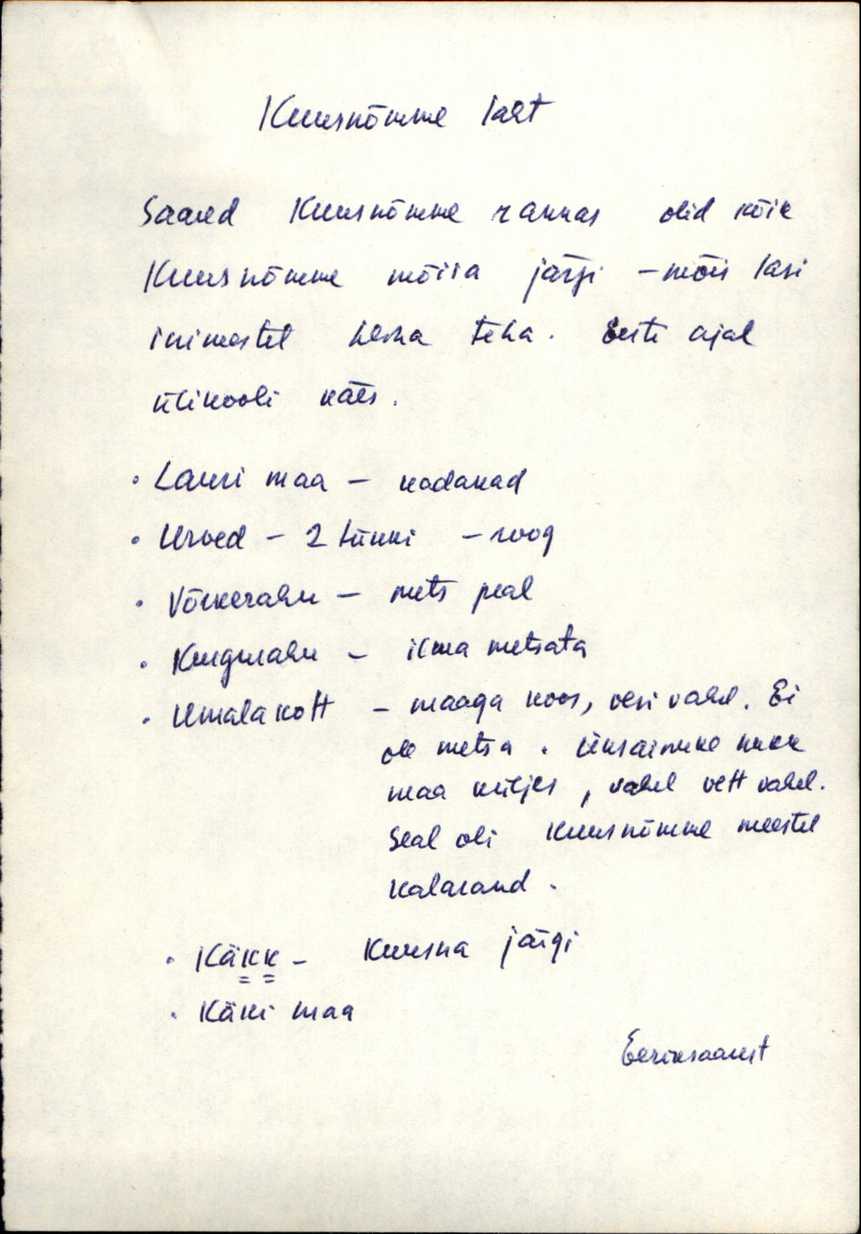 Kuusnõmme laht
Saared Kuusnõmme rannas olid kõik
Kuusnõmme mõisa järgi – mõis lasi
inimestel heina teha. Eesti ajal
ülikooli käes.
• Lauri maa – kadakad
• Urved – 2 tükki – roog
• Võikerahu – mets peal
• Kungurahu – ilma metsata
• Umalakott – maaga koos, vesi vahel. Ei
ole metsa. Üksainuke nukk
maa küljes, vahel vett vahel.
Seal oli Kuusnõmme meestel
kalarand.
• Käkk – Kuusna järgi
• Käki maa
Eeriksaarest